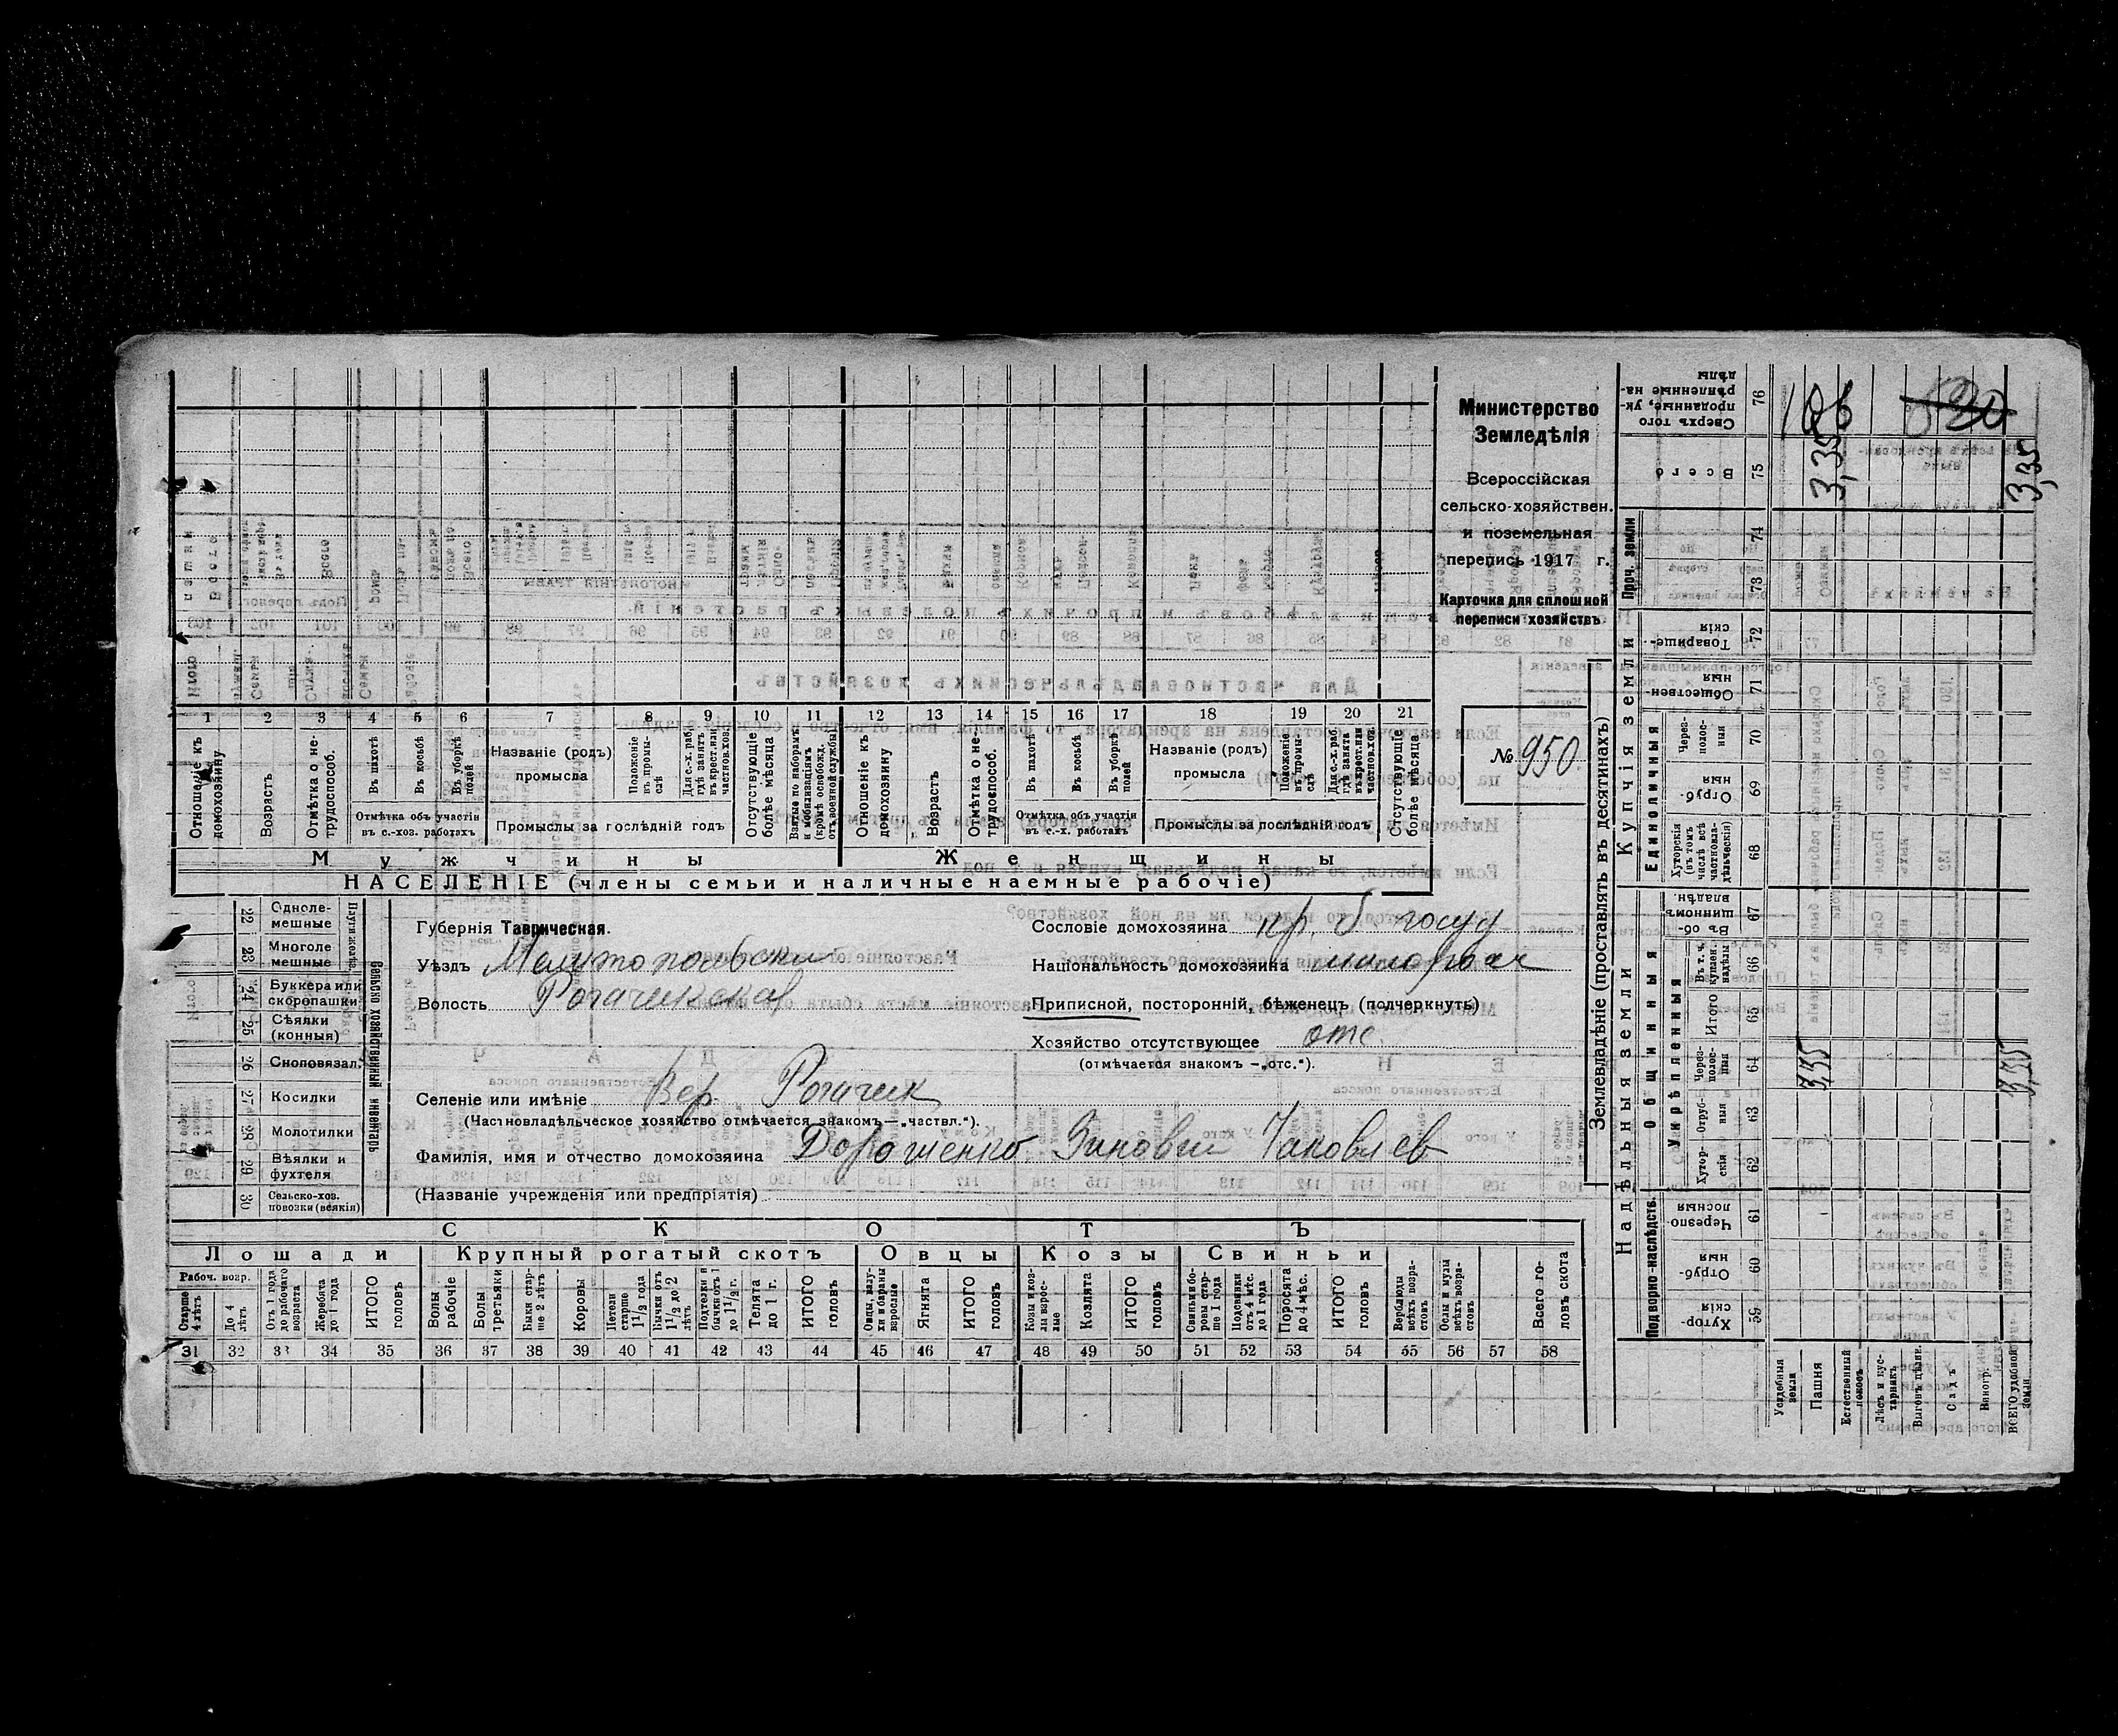 Министерство
Земледѣлія
Всероссійская
сельско-хозяйствен.
и поземельная
перепись 1917 г.
Карточка для сплошной
переписи хозяйствъ
№ 950
1 2 3 4 5 6 7 8 9 10 11 12 13 14 15 16 17 18 19 20 21
Отношеніе къ домохозяину
Возрастъ
Отмѣтка о не-трудоспособ.
Въ пахотѣ
Въ косьбѣ
Въ уборкѣ полей
Отмѣтка объ участіи въ с.-хоз. работахъ
Названіе (родъ) промысла
Положеніе въ промы-слѣ
Для с.-х. раб. гдѣ занятъ въ крест. или частнов. хоз.
Промыслы за послѣдній годъ
Отсутствующіе болѣе мѣсяца
Взятые по наборамъ и мобилизаціямъ (кромѣ освобожд. отъ военной службы)
Отношеніе къ домохозяину
Возрастъ
Отмѣтка о не-трудоспособ.
Въ пахотѣ
Въ косьбѣ
Въ уборкѣ полей
Отмѣтка объ участіи въ с.-х. работахъ
Названіе (родъ) промысла
Положеніе въ промы-слѣ
Для с.-х. раб. гдѣ занятъ въ крест. или частнов. хоз.
Промыслы за послѣдній годъ
Отсутствующіе болѣе мѣсяца
Мужчины Женщины
НАСЕЛЕНІЕ (члены семьи и наличные наемные рабочіе)
Сельско хозяйственный инвентарь
Плуги желѣз.
22 Одноле-мешные
23 Многоле мешные
24 Буккера или скоропашки
25 Сѣялки (конныя)
26 Сноповязал.
27 Косилки
28 Молотилки
29 Вѣялки и фухтеля
30 Сельско-хоз. повозки (всякія)
Губернія Таврическая.
Уѣздъ Мелитопольский
Волость Рогачикская
Сословіе домохозяина кр. б. госуд
Національность домохозяина малоросс
Приписной, посторонній, бѣженецъ (подчеркнуть)
Хозяйство отсутствующее отс.
(отмѣчается знакомъ —„отс.“).
Селеніе или имѣніе Вер. Рогачик
(Частновладѣльческое хозяйство отмѣчается знакомъ—„частвл.“).
Фамилія, имя и отчество домохозяина Дорошенко Зиновий Яковлев
(Названіе учрежденія или предпріятія)
СКОТЪ
Лошади Крупный рогатый скотъ Овцы Козы Свиньи
Рабоч. возр.
Старше 4 лѣтъ
До 4 лѣтъ
Отъ 1 года до рабочаго возраста
Жеребята до 1 года
ИТОГО головъ
Волы рабочіе
Волы третьяки
Быки стар-ше 2 лѣтъ
Коровы
Нетели старше 1 1/2 года
Бычки отъ 1 1/2 до 2 лѣтъ
Подтелки и бычки отъ 1 до 1 1/2 г.
Телята до 1 г.
ИТОГО головъ
Овцы, валу-хи и бараны взрослые
Ягнята
ИТОГО головъ
Козы и коз-лы взрос-лые
Козлята
ИТОГО головъ
Свиньи и бо-ровы стар-ше 1 года
Подсвинки отъ 4 мѣс. до 1 года
Поросята до 4 мѣс.
ИТОГО головъ
Верблюды всѣхъ возра-стовъ
Ослы и мулы всѣхъ возра-стовъ
Всего го-ловъ скота
31 32 33 34 35 36 37 38 39 40 41 42 43 44 45 46 47 48 49 50 51 52 53 54 55 56 57 58
Землевладѣніе (проставлять въ десятинахъ)
Надѣльныя земли Купчія земли
Подворно-наслѣдств.
Общинныя
Укрѣпленныя
Единоличныя
Проч. земли
Хутор-скія 59
Отруб-ныя 60
Черезпо-лосныя 61
Хутор-скія 62
Отруб-ныя 63
Через-полос-ныя 64
Итого 65
Въ т. ч. куплен. надѣлы 66
Въ об-щинномъ владѣн. 67
Хуторскія (въ томъ числѣ всѣ частновла-дѣльческія) 68
Отруб-ныя 69
Через-полос-ныя 70
Обществен-ныя 71
Товарище-скія 72
73
74
Всего 75
Сверхъ того проданные, ук-рѣпленные на-дѣлы 76
Усадебная земля
Пашня
Естественный покосъ
Лѣсъ и кус-тарникъ
Выгонъ цѣлин.
Садъ
Виногр.
ВСЕГО удобной земли
3,35 3,35
3,35 3,35